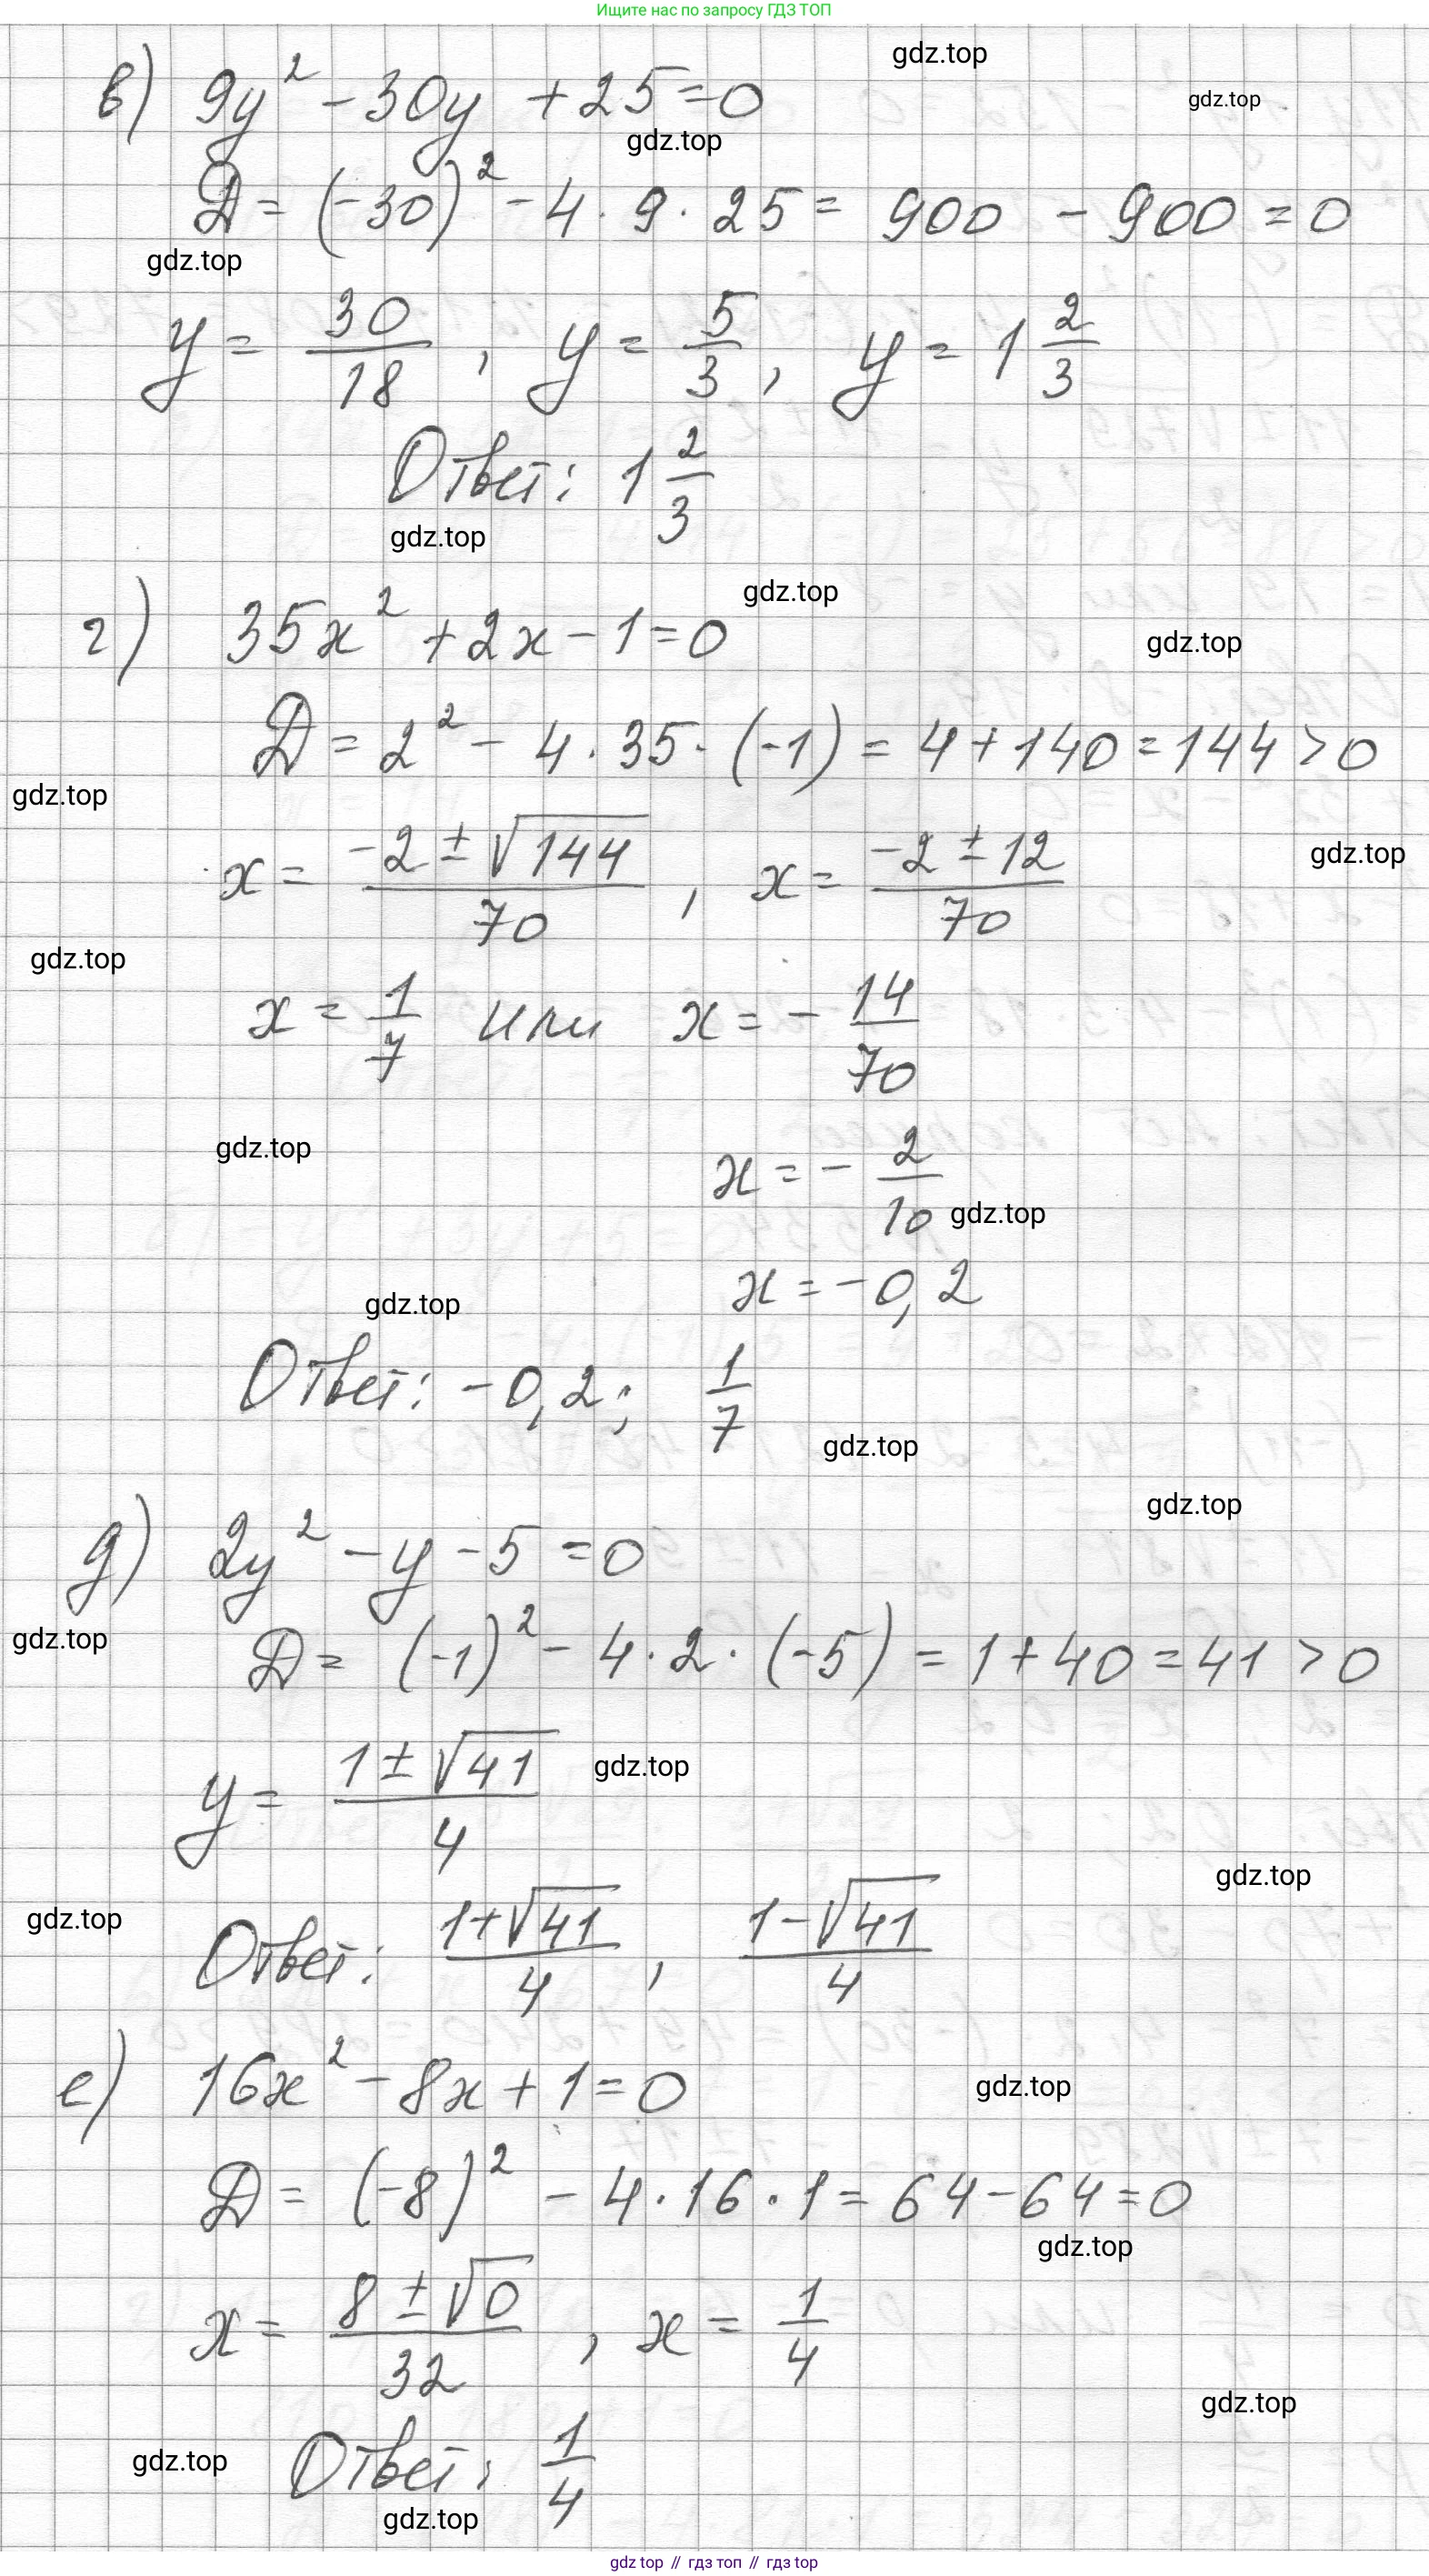 Ищите нас по запросу ГДЗ ТОП
gdz.top
в) 9y² - 30y + 25 = 0
gdz.top
gdz.top
D = (-30)² - 4 · 9 · 25 = 900 - 900 = 0
gdz.top
y = 30/18, y = 5/3, y = 1 2/3
Ответ: 1 2/3
gdz.top
gdz.top
г) 35x² + 2x - 1 = 0
gdz.top
D = 2² - 4 · 35 · (-1) = 4 + 140 = 144 > 0
gdz.top
x = (-2 ± √144)/70, x = (-2 ± 12)/70
gdz.top
gdz.top
x = 1/7 или x = - 14/70
gdz.top
x = - 2/10
gdz.top
x = -0,2
gdz.top
Ответ: -0,2; 1/7
gdz.top
gdz.top
д) 2y² - y - 5 = 0
gdz.top
D = (-1)² - 4 · 2 · (-5) = 1 + 40 = 41 > 0
y = (1 ± √41)/4
gdz.top
gdz.top
gdz.top
Ответ: (1+√41)/4, (1-√41)/4
е) 16x² - 8x + 1 = 0
gdz.top
D = (-8)² - 4 · 16 · 1 = 64 - 64 = 0
gdz.top
x = (8 ± √0)/32, x = 1/4
gdz.top
gdz.top
Ответ: 1/4
gdz.top
gdz top // гдз топ // гдз top